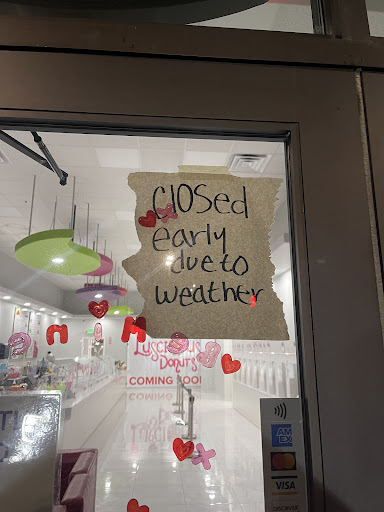 closed
early
due to
weather
Luscious
Donuts
COMING SOON
AM
EX
VISA
DISCOVER